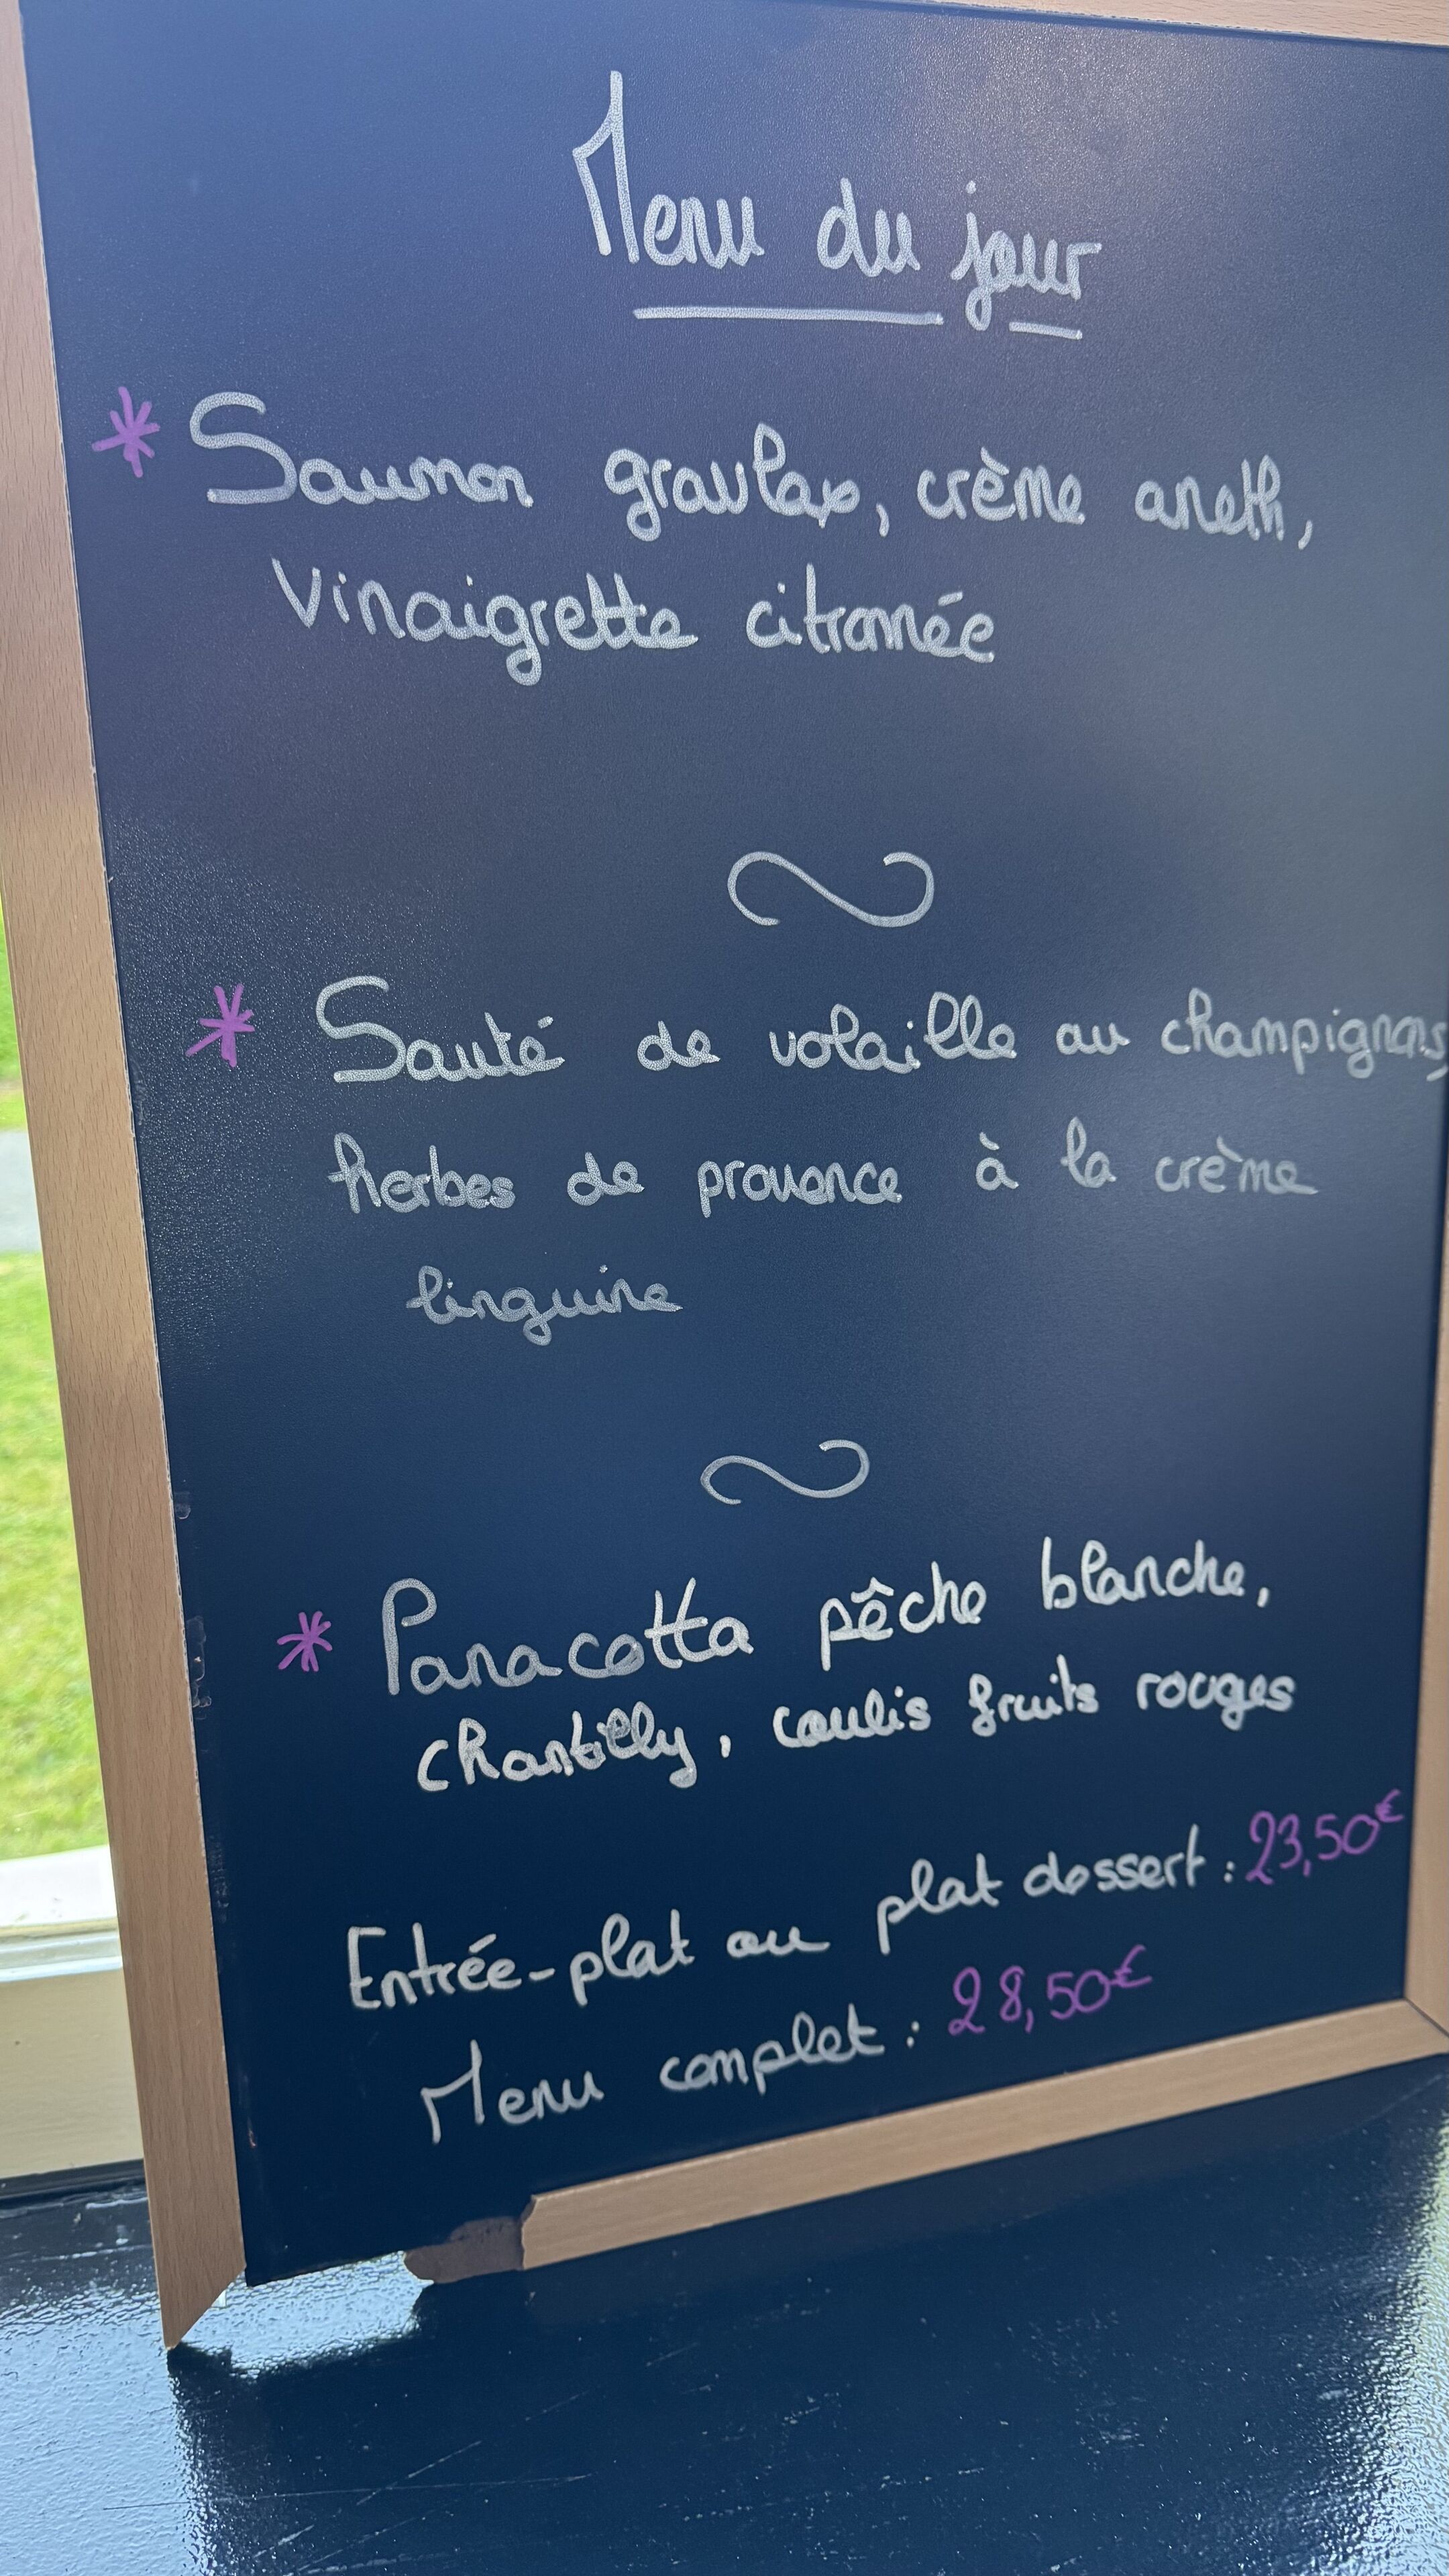 Menu du jour
* Saumon gravlax, crème aneth,
vinaigrette citronnée
* Sauté de volaille au champignons,
herbes de provence à la crème
linguine
* Panacotta pêche blanche,
chantilly, coulis fruits rouges
Entrée-plat ou plat dessert : 23,50€
Menu complet : 28,50€